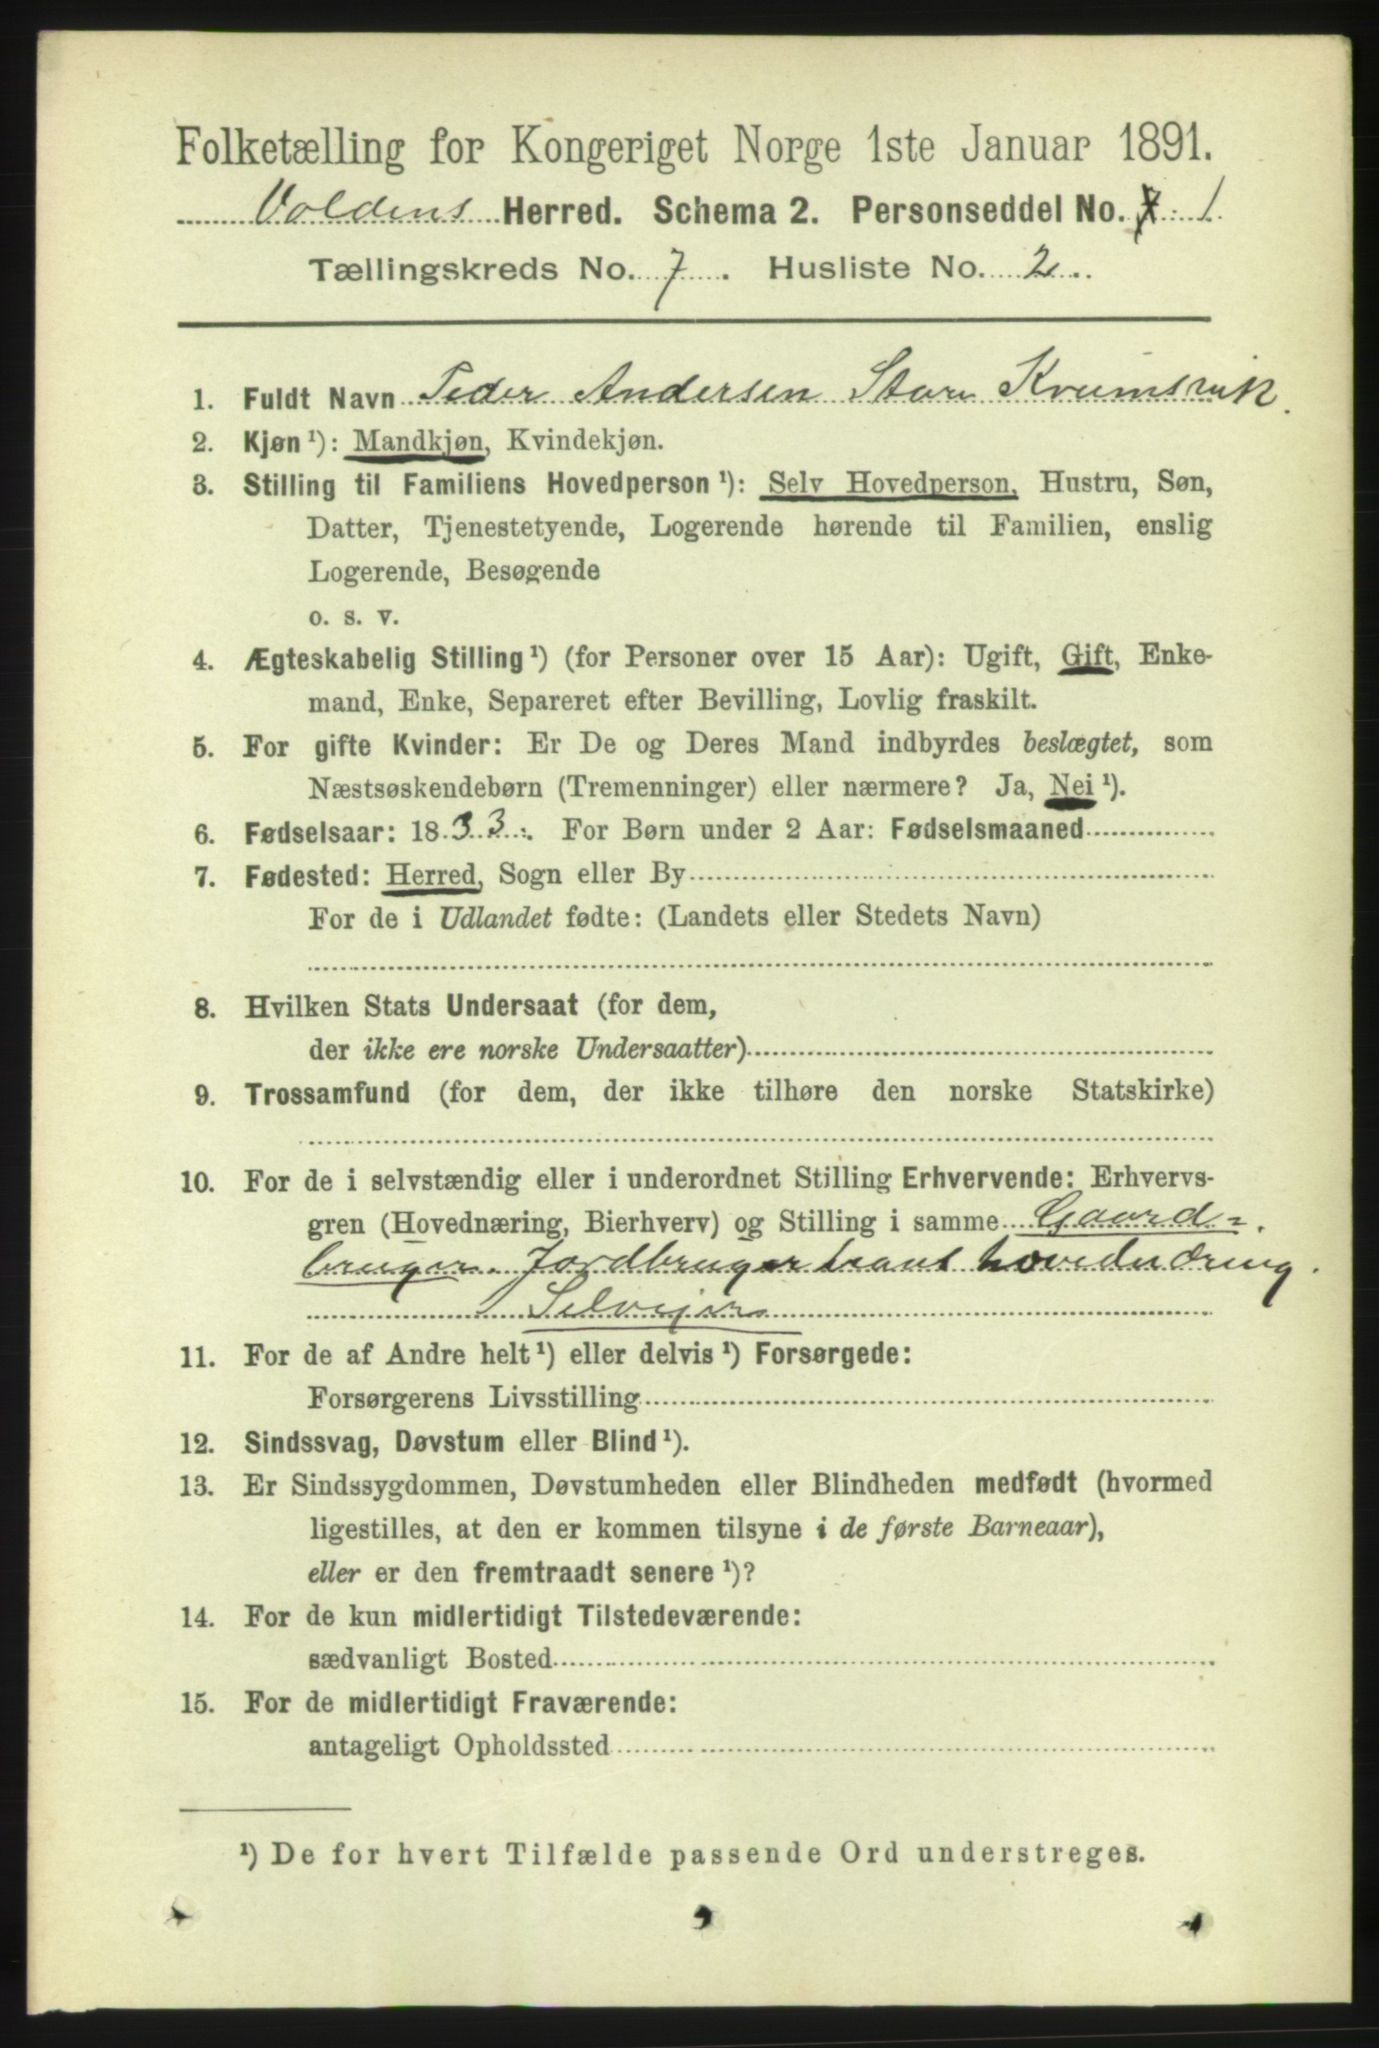 Folketælling for Kongeriget Norge 1ste Januar 1891.
Voldens Herred. Schema 2. Personseddel No. 1
Tællingskreds No. 7. Husliste No. 2.
1. Fuldt Navn Peder Andersen Store Kvumsvik.
2. Kjøn ¹): Mandkjøn, Kvindekjøn.
3. Stilling til Familiens Hovedperson ¹): Selv Hovedperson, Hustru, Søn,
Datter, Tjenestetyende, Logerende hørende til Familien, enslig
Logerende, Besøgende
o. s. v.
4. Ægteskabelig Stilling ¹) (for Personer over 15 Aar): Ugift, Gift, Enke-
mand, Enke, Separeret efter Bevilling, Lovlig fraskilt.
5. For gifte Kvinder: Er De og Deres Mand indbyrdes beslægtet, som
Næstsøskendebørn (Tremenninger) eller nærmere? Ja, Nei ¹).
6. Fødselsaar: 1833. For Børn under 2 Aar: Fødselsmaaned
7. Fødested: Herred, Sogn eller By
For de i Udlandet fødte: (Landets eller Stedets Navn)
8. Hvilken Stats Undersaat (for dem,
der ikke ere norske Undersaatter)
9. Trossamfund (for dem, der ikke tilhøre den norske Statskirke)
10. For de i selvstændig eller i underordnet Stilling Erhvervende: Erhvervs-
gren (Hovednæring, Bierhverv) og Stilling i samme Gaard-
bruger. Jordbruger hovednæring.
Selvejer
11. For de af Andre helt ¹) eller delvis ¹) Forsørgede:
Forsørgerens Livsstilling
12. Sindssvag, Døvstum eller Blind ¹).
13. Er Sindssygdommen, Døvstumheden eller Blindheden medfødt (hvormed
ligestilles, at den er kommen tilsyne i de første Barneaar),
eller er den fremtraadt senere ¹)?
14. For de kun midlertidigt Tilstedeværende:
sædvanligt Bosted
15. For de midlertidigt Fraværende:
antageligt Opholdssted
¹) De for hvert Tilfælde passende Ord understreges.